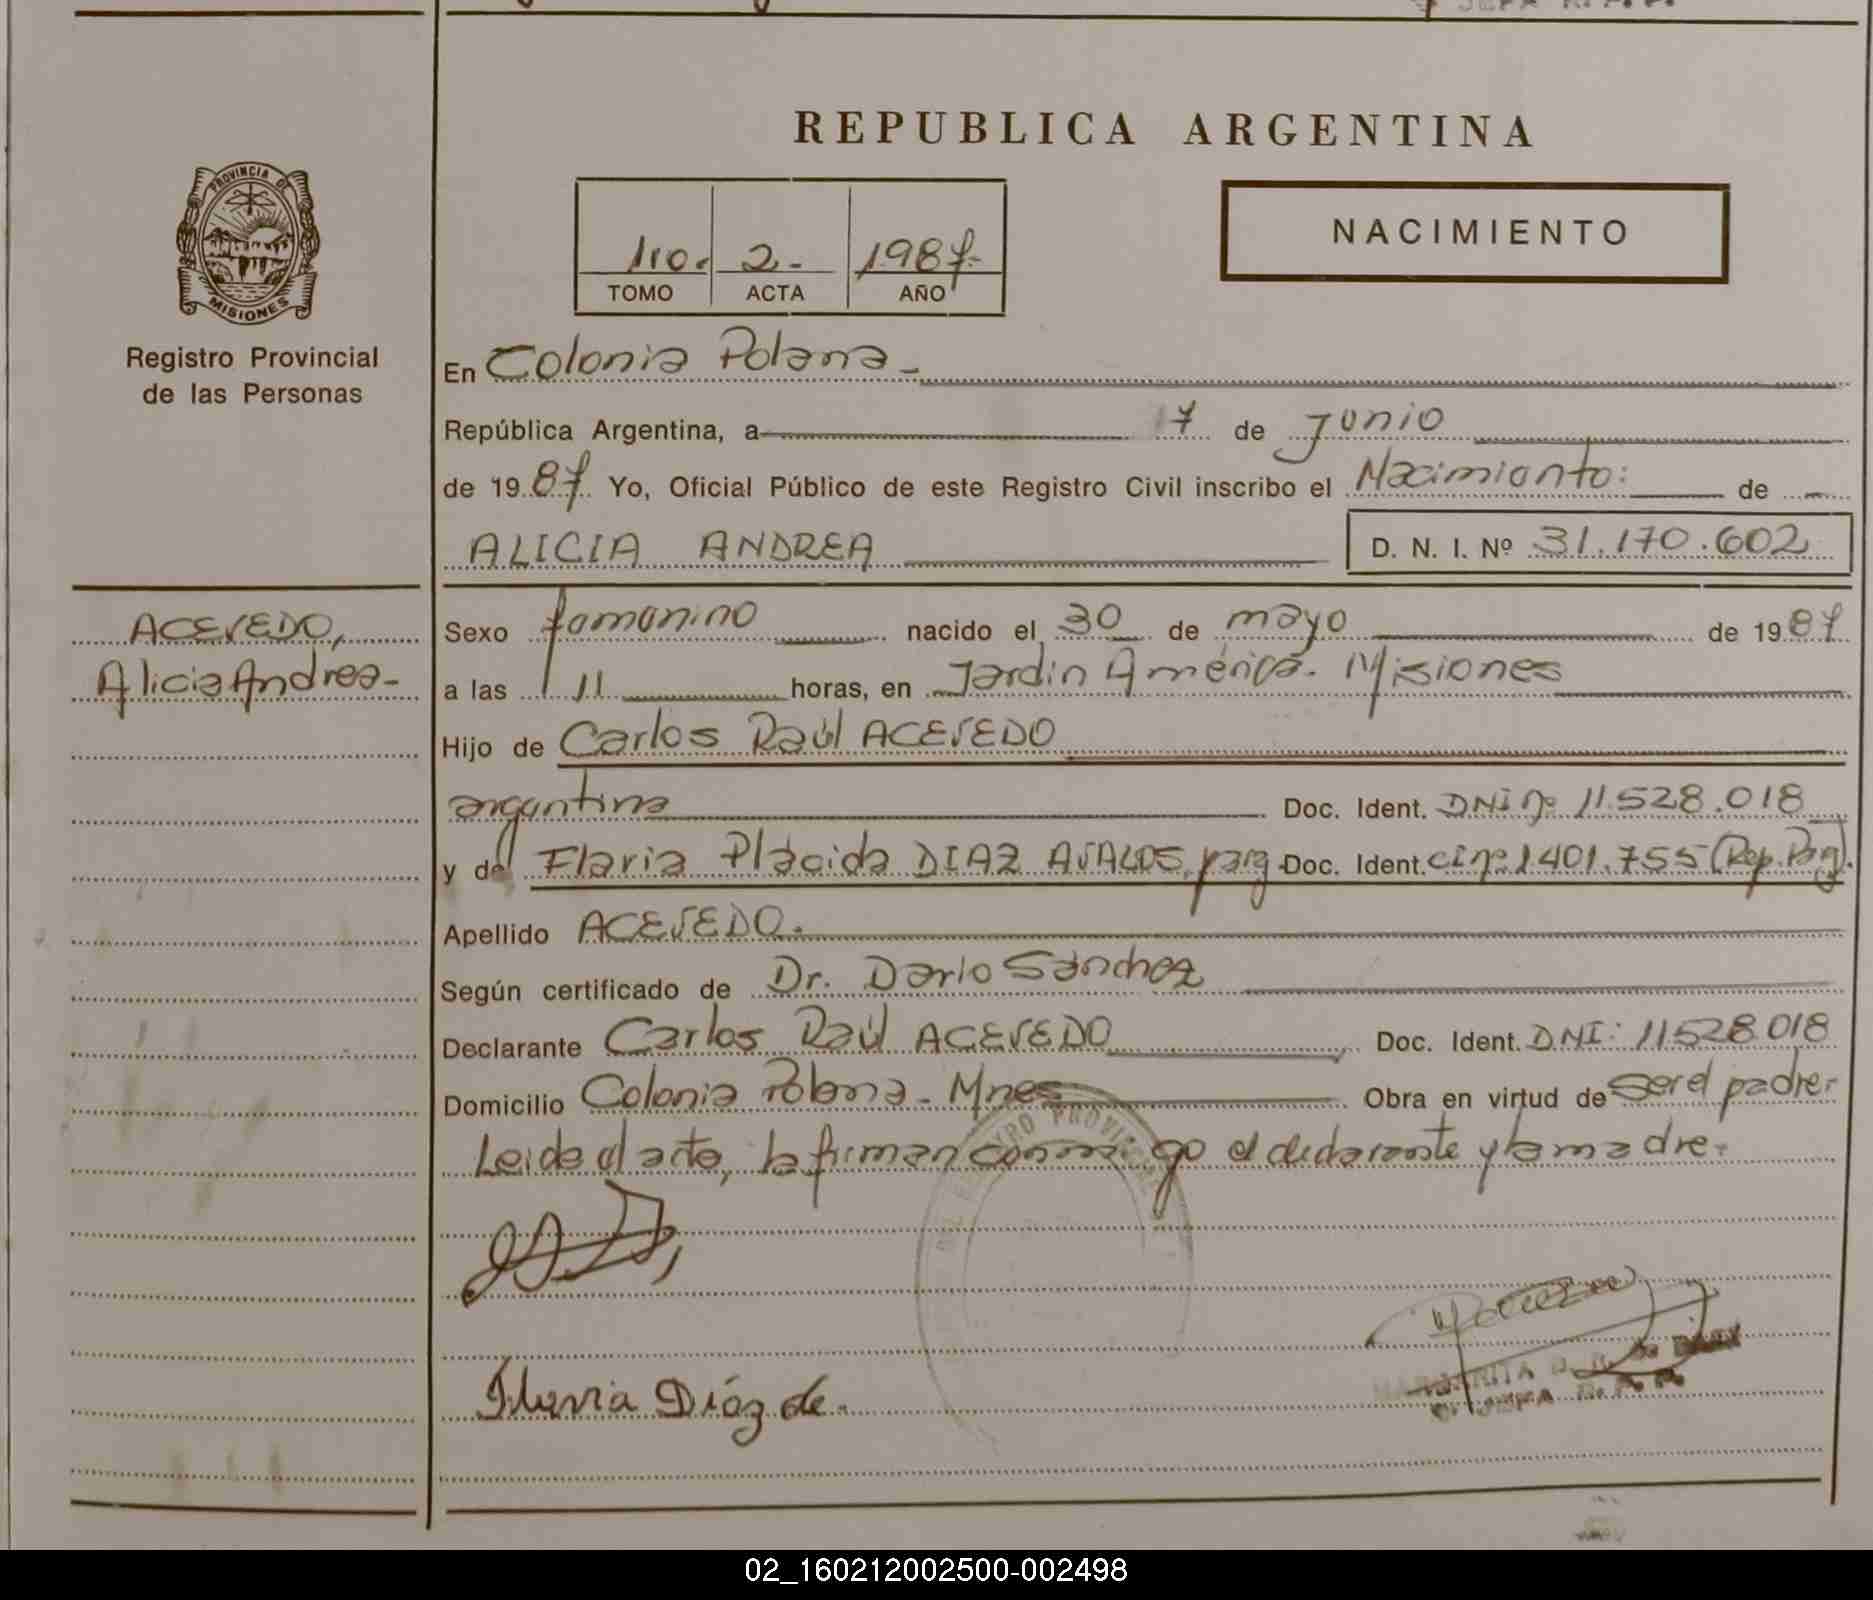 REPUBLICA ARGENTINA
PROVINCIA DE
MISIONES
Registro Provincial
de las Personas
NACIMIENTO
1ro. 2- 1987-
TOMO ACTA AÑO
En Colonia Polana-
República Argentina, a 17 de junio
de 1987. Yo, Oficial Público de este Registro Civil inscribo el Nacimiento: de
ALICIA ANDREA D. N. I. Nº 31.170.602
ACEVEDO,
Alicia Andrea-
Sexo femenino nacido el 30 de mayo de 1987
a las 11 horas, en Jardin América. Misiones
Hijo de Carlos Raúl ACEVEDO
argentina Doc. Ident. DNI nº 11.528.018
y de Flavia Plácida DIAZ AVALOS, parg Doc. Ident. CI nº 1401.755 (Rep. Parg).
Apellido ACEVEDO.
Según certificado de Dr. Dario Sánchez
Declarante Carlos Raúl ACEVEDO Doc. Ident. DNI: 11528.018
Domicilio Colonia Polana - Mnes Obra en virtud de ser el padre.
Leida el acta, la firman conmigo el declarante y la madre.
REGISTRO PROVINCIAL
Flavia Díaz de.
MARGARITA
JEFA R. P. P.
02_160212002500-002498